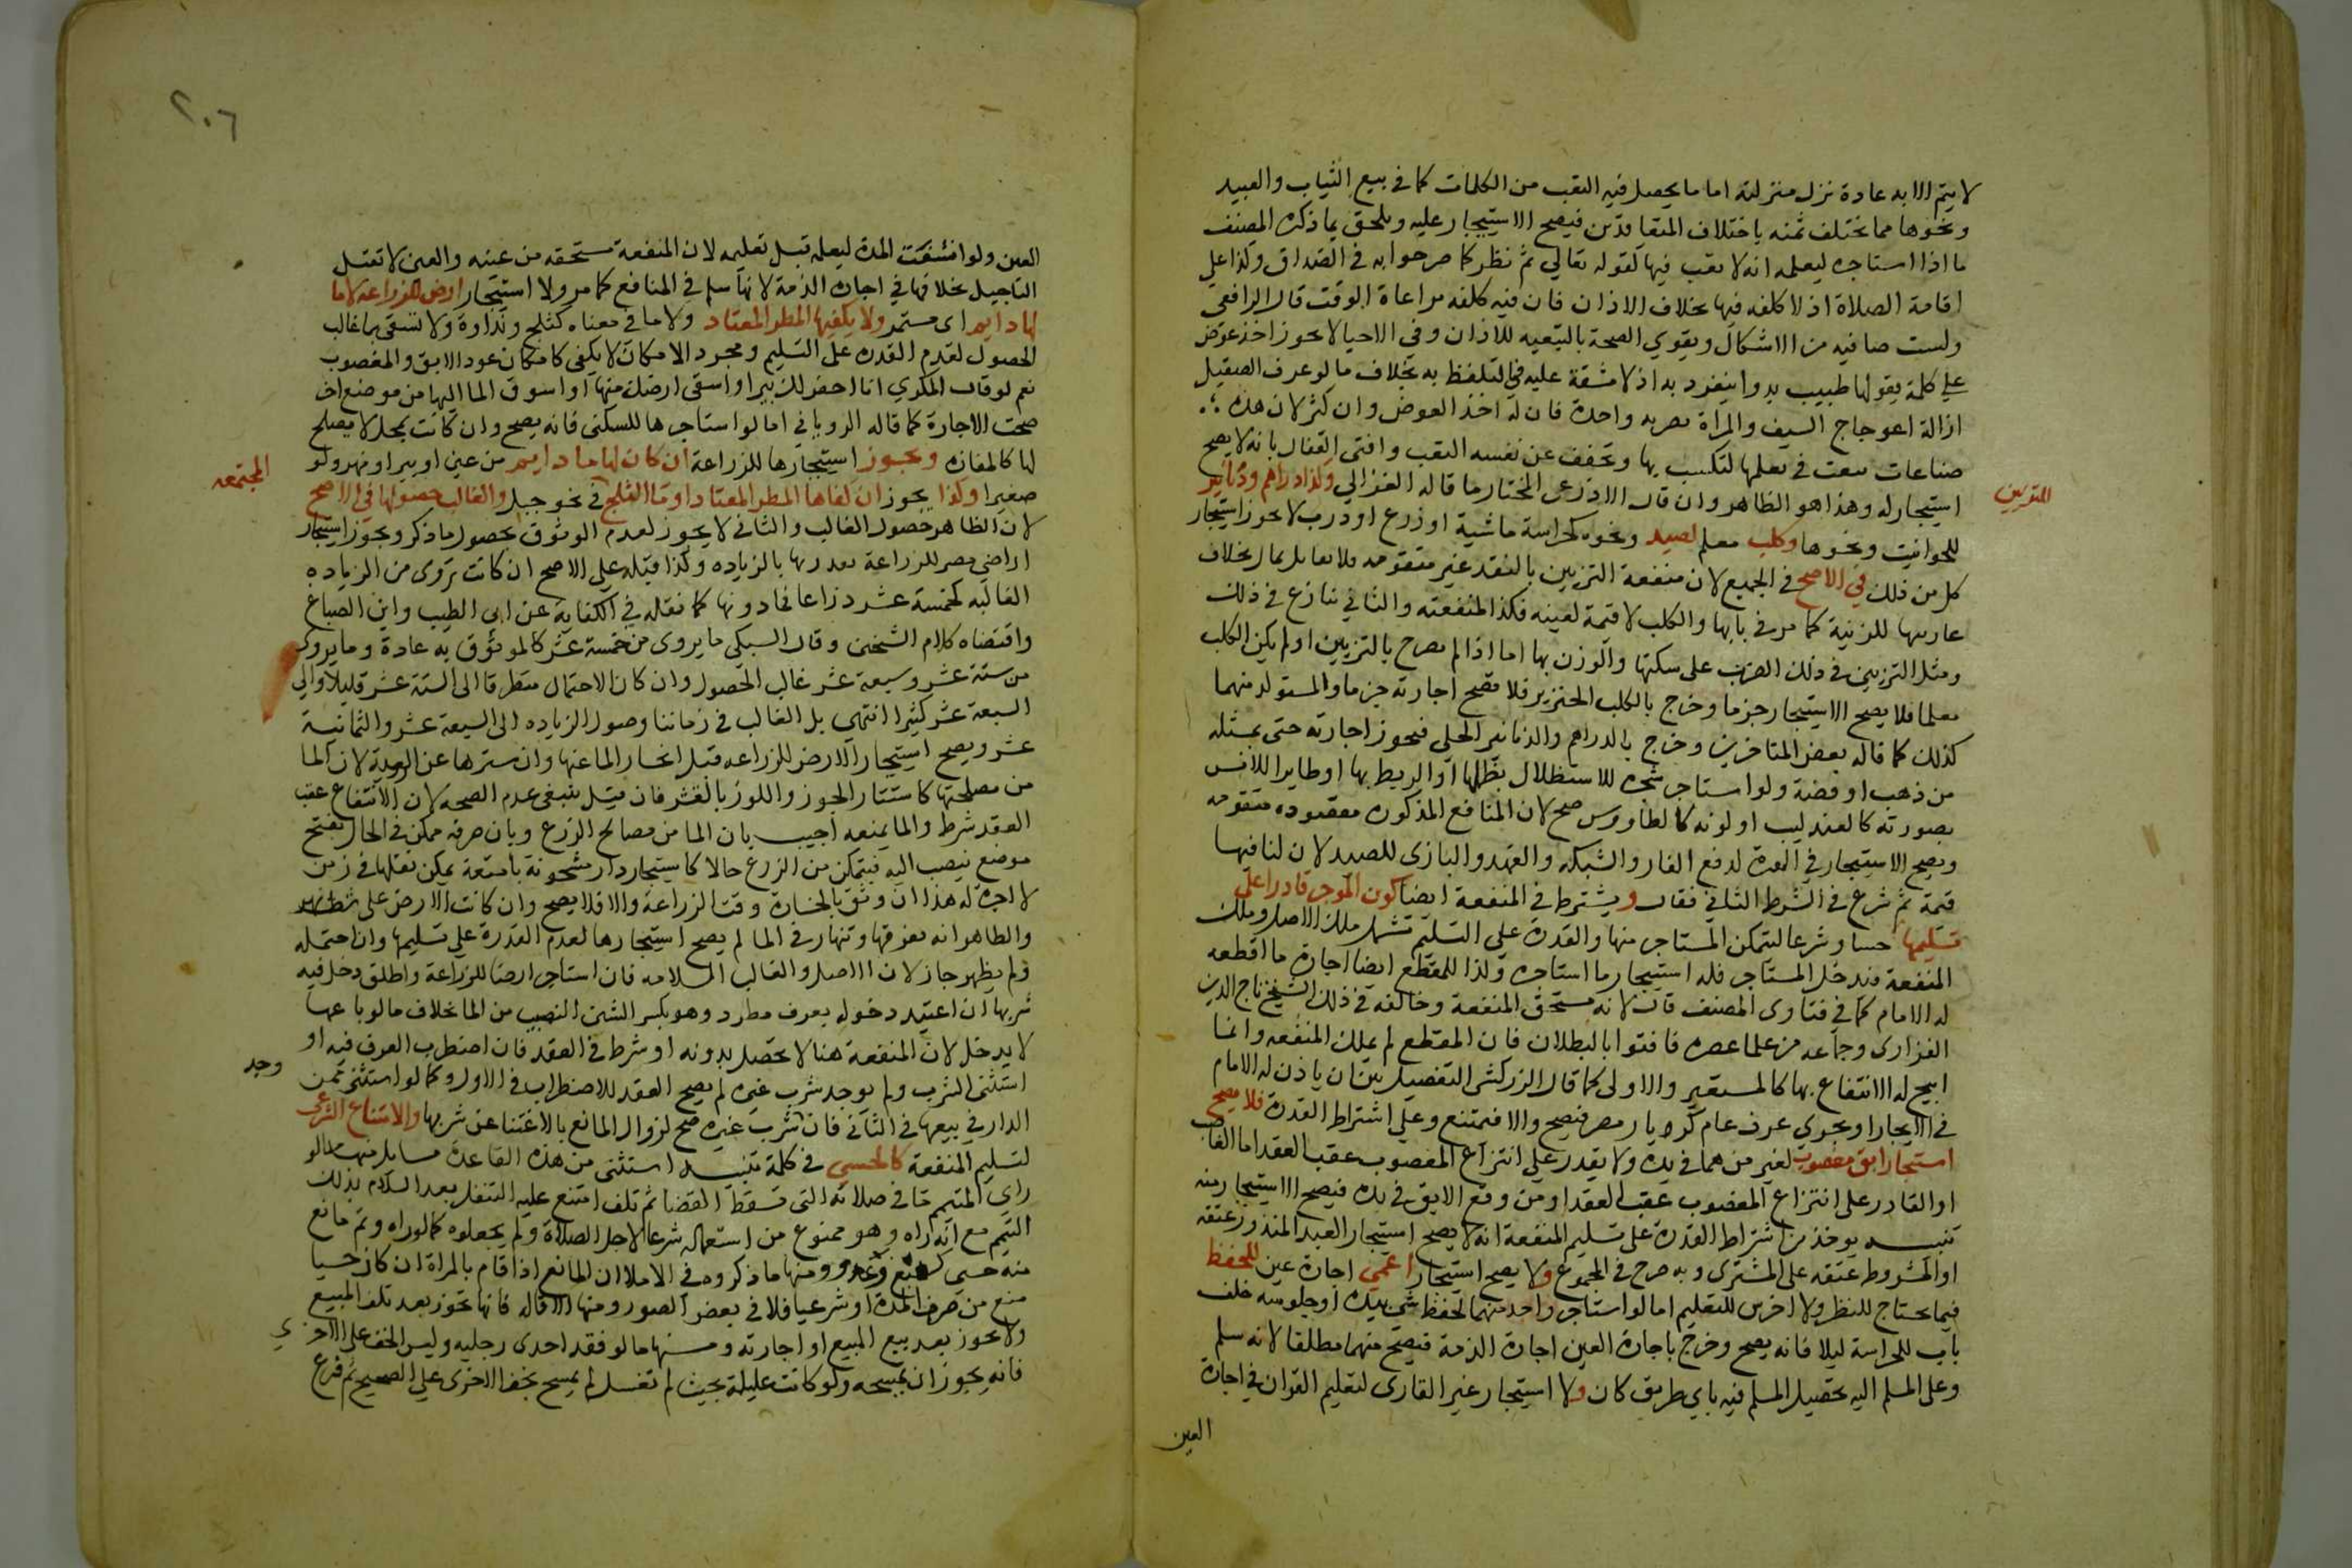 لا يتم الا به عادة نزل منزلته اما ما يحصل فيه التعب من الكلمات كما في بيع الثياب والعبيد
ونحوها مما يختلف ثمنه باختلاف المتعاقدين فيصح الاستيجار عليه ويلحق بما ذكره المصنف
ما اذا استاجره ليعلمه اية لا تعب فيها كقوله تعالى ثم نظر كما صرحوا به في الصداق وكذا على
اقامة الصلاة اذ لا كلفه فيها بخلاف الاذان فان فيه كلفه مراعاة الوقت قال الرافعى
وليست صافيه من الاشكال ويقوي الصحة بالتبعيه للاذان وفي الاحيا لا يجوز اخذ عوض
على كلمة يقولها طبيب بدوا ينفرد به اذ لا مشقة عليه في التلفظ به بخلاف ما لو عرف الصيقل
ازالة اعوجاج السيف والمراة بضربه واحدة فان له اخذ العوض وان كثر لان هذه
صناعات يتعب في تعلمها لتكسب بها وتخفف عن نفسه التعب وافتى القفال بانه لا يصح
استيجار له وهذا هو الظاهر وان قال الاذرعى المختار ما قاله الغزالي وكذا دراهم ودنانير
للتزيين
للحوانيت ونحوها وكلب معلم لصيد ونحوه كحراسة ماشية او زرع او درب لا يجوز استيجار
كل من ذلك في الاصح في الجميع لان منفعة التزيين بالنقد غير متقومه فلا تقابل بمال بخلاف
عاريتها للزينة كما مر في بابها والكلب لا قيمة لعينه فكذا المنفعته والثاني ينازع في ذلك
ومثل التزيين في ذلك الضرب على سكتها والوزن بها اما اذا لم يصرح بالتزيين او لم يكن الكلب
معلما فلا يصح الاستيجار جزما وخرج بالكلب الخنزير فلا تصح اجارته جزما والمتولد منهما
كذلك كما قاله بعض المتاخرين وخرج بالدراهم والدنانير الحلى فيجوز اجارته حتى بمثله
من ذهب او فضة ولو استاجر شجره للاستظلال بظلها او الربط بها او طايرا للانس
بصورته كالعندليب او لونه كالطاووس صح لان المنافع المذكوره مقصوده متقومه
ويصح الاستيجار في الهرة لدفع الفار والشبكه والفهد والبازى للصيد لان لمنافعها
قيمة ثم شرع في الشرط الثاني فقال ويشترط في المنفعة ايضا كون الموجر قادرا على
تسليمها حسا وشرعا ليتمكن المستاجر منها والقدرة على التسليم تشمل ملك الاصل وملك
المنفعة فيدخل المستاجر فله استيجار ما استاجره وكذا للمقطع ايضا اجارة ما اقطعه
له الامام كما في فتاوى المصنف قال لانه مستحق المنفعة وخالفه في ذلك الشيخ تاج الدين
الفزارى وجماعه من علما عصره فافتوا بالبطلان فان المقطع لم يملك المنفعه وانما
ابيح له الانتفاع بها كالمستعير والاولى كما قال الزركشى التفصيل بين ان ياذن له الامام
في الايجار او يجرى عرف عام كديار مصر فيصح والا فيمتنع وعلى اشتراط القدرة فلا يصح
استيجار ابق ومغصوب لغير من هما في يده ولا يقدر على انتزاع المغصوب عقب العقد اما الغاصب
او القادر على انتزاع المغصوب عقب العقد او من وقع الابق في يده فيصح الاستيجار منه
تنبيه يوخذ من اشتراط القدرة على تسليم المنفعة انه لا يصح استيجار العبد المنذور عتقه
او المشروط عتقه على المشترى وبه صرح في المجموع ولا يصح استيجار اعمى اجارة عين للحفظ
فيما يحتاج للنظر ولا اخرس للتعليم اما لو استاجر واحد منهما لحفظ شي بيده او جلوسه خلف
باب للحراسة ليلا فانه يصح وخرج باجارة العين اجارة الذمة فيصح منهما مطلقا لانه سلم
وعلى المسلم اليه تحصيل المسلم فيه باي طريق كان ولا استيجار غير القارى لتعليم القران في اجارة
العين
٢٠٦
العين ولو اتسعت المدة ليعلمه قبل تعليمه لان المنفعة مستحقه من عينه والعين لا تقبل
التاجيل بخلافها في اجارة الذمة لانها سلم في المنافع كما مر ولا استيجار ارض للزراعه لا ما
لها دايم اى مستمر ولا يكفيها المطر المعتاد ولا ما في معناه كثلج ونداوة ولا تسقى بما غالب
الحصول لعدم القدره على التسليم ومجرد الامكان لا يكفى كامكان عود الابق والمغصوب
نعم لو قال المكري انا احفر لك بيرا واسقى ارضك منها او اسوق الما اليها من موضع اخر
صحت الاجارة كما قاله الروياني اما لو استاجرها للسكنى فانه يصح وان كانت بمحل لا يصلح
لها كالمفازه ويجوز استيجارها للزراعة ان كان لها ما دايم من عين او بير او نهر ولو
صغيرا وكذا يجوز ان كفاها المطر المعتاد او ما الثلج في نحو جبل والغالب حصولها في الاصح
المجتمعه
لان الظاهر حصول الغالب والثانى لا يجوز لعدم الوثوق بحصول ما ذكر ويجوز استيجار
اراضى مصر للزراعة بعد ريها بالزياده وكذا قبله على الاصح ان كانت تروى من الزياده
الغالبه كخمسة عشر ذراعا فما دونها كما نقله في الكفاية عن ابى الطيب وابن الصباغ
واقتضاه كلام الشيخين وقال السبكى ما يروى من خمسة عشر كالموثوق به عادة وما يروى
من ستة عشر وسبعة عشر غالب الحصول وان كان الاحتمال متطرقا الى الستة عشر قليلا والى
السبعة عشر كثيرا انتهى بل الغالب في زماننا وصول الزياده الى السبعة عشر والثمانية
عشر ويصح استيجار الارض للزراعه قبل انحسار الما عنها وان سترها عن الروية لان الما
من مصلحتها كاستتار الجوز واللوز بالقشر فان قيل ينبغى عدم الصحه لان الانتفاع عقب
العقد شرط والما يمنعه اجيب بان الما من مصالح الزرع وبان صرفه ممكن في الحال بفتح
موضع ينصب اليه فيتمكن من الزرع حالا كاستيجار دار مشحونة بامتعة يمكن نقلها في زمن
لا اجرة له هذا ان وثق بانحساره وقت الزراعة والا فلا يصح وان كانت الارض على شط نهر
والظاهر انه يغرقها وتنهار في الما لم يصح استيجارها لعدم القدرة على تسليمها وان احتمله
ولم يظهر جاز لان الاصل والغالب السلامه فان استاجر ارضا للزراعة واطلق دخل فيه
شربها ان اعتيد دخوله بعرف مطرد وهو بكسر الشين النصيب من الما بخلاف ما لو باعها
لا يدخل لان المنفعة هنا لا تحصل بدونه او شرط في العقد فان اضطرب العرف فيه او
استثنى الشرب ولم يوجد شرب غيره لم يصح العقد للاضطراب في الاول وكما لو استثنى ممر
وجد
الدار في بيعها في الثاني فان شرب غيره صح لزوال المانع بالاغتنا عن شربها والامتناع الشرعى
لتسليم المنفعة كالحسي في كلمة تنبيه استثنى من هذه القاعدة مسايل منها ما لو
راى المتيمم ما في صلاته التى تسقط القضا ثم تلف امتنع عليه التنفل بعد السلام بذلك
التيمم مع انه راه وهو ممنوع من استعماله شرعا لاجل الصلاة ولم يجعلوه كما لو راه وثم مانع
منه حسى كسبع وعدو ومنها ما ذكروه في الايلا ان المانع اذا قام بالمراة ان كان حسيا
منع من ضرب المدة او شرعيا فلا في بعض الصور ومنها الاقاله فانها تجوز بعد تلف المبيع
ولا تجوز بعد بيع المبيع او اجارته ومنها ما لو فقد احدى رجليه ولبس الخف على الاخرى
فانه يجوز ان يمسحه ولو كانت عليلة بحيث لم تغسل لم يمسح بخف الاخرى على الصحيح ثم فرع